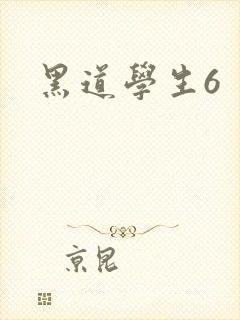 黑道學生6
京昆